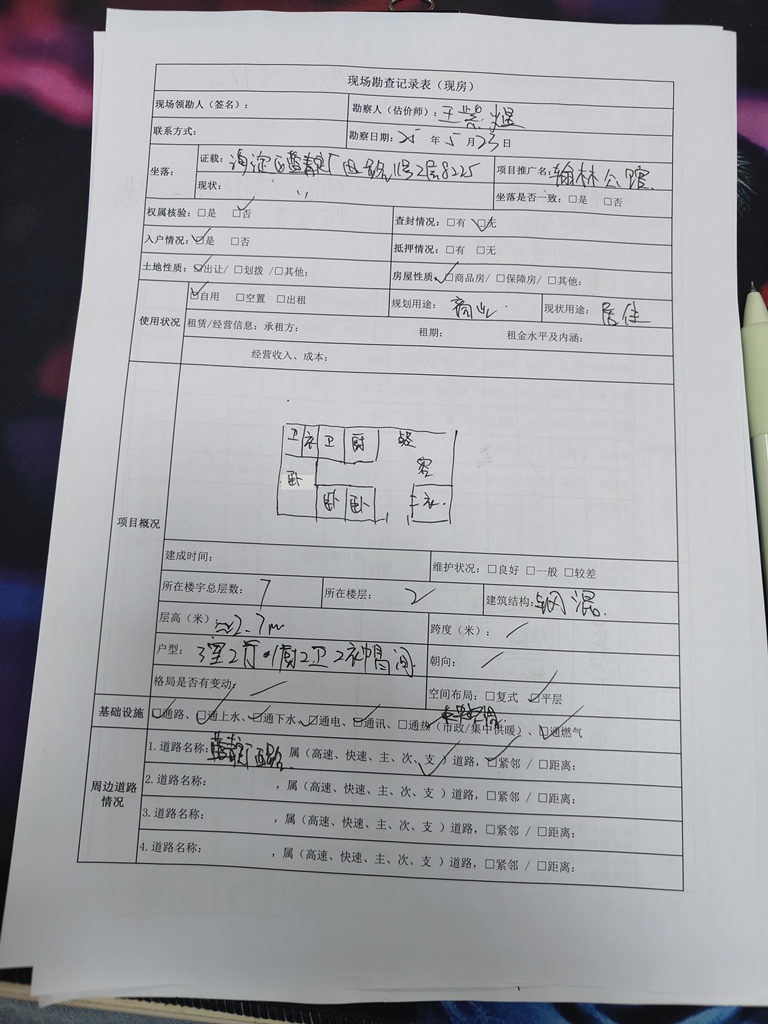 现场勘查记录表（现房）
现场领勘人（签名）：
勘察人（估价师）：王
联系方式：
勘察日期：25 年 5 月 23 日
坐落：
证载：海淀区蓝靛厂 号 2层8225
项目推广名：翰林公馆.
现状：〃
坐落是否一致：□是 □否
权属核验：□是 ☑否
查封情况：□有 ☑无
入户情况：☑是 □否
抵押情况：□有 □无
土地性质：☑出让/ □划拨 /□其他：
房屋性质：☑商品房/ □保障房/ □其他：
使用状况
☑自用 □空置 □出租
规划用途：商业
现状用途：居住
租赁/经营信息：承租方： 租期： 租金水平及内涵：
经营收入、成本：
项目概况
卫 衣 卫 厨 客
卧 卧 卧 衣
建成时间：
维护状况：□良好 □一般 □较差
所在楼宇总层数：7
所在楼层：2
建筑结构：钢混.
层高（米）：≈2.7m
跨度（米）：/
户型：3室2厅1厨2卫2衣帽间
朝向：/
格局是否有变动：/
空间布局：□复式 ☑平层
基础设施
☑通路、☑通上水、☑通下水、☑通电、☑通讯、□通热（市政/集中供暖）、☑通燃气
周边道路情况
1.道路名称：蓝靛厂西路，属（高速、快速、主、次、支✓）道路，☑紧邻 / □距离：
2.道路名称： ，属（高速、快速、主、次、支 ）道路，□紧邻 / □距离：
3.道路名称： ，属（高速、快速、主、次、支 ）道路，□紧邻 / □距离：
4.道路名称： ，属（高速、快速、主、次、支 ）道路，□紧邻 / □距离：